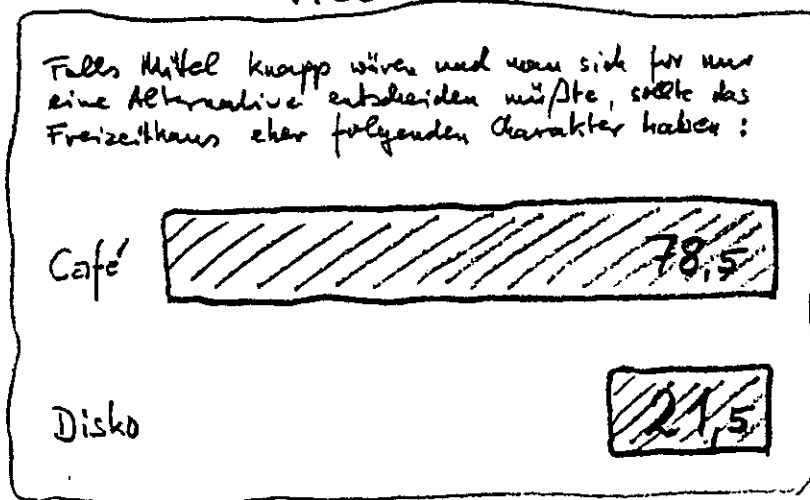 Falls Mittel knapp wären und man sich für nur
eine Alternative entscheiden müßte, sollte das
Freizeithaus eher folgenden Charakter haben :
Café 78,5
Disko 21,5